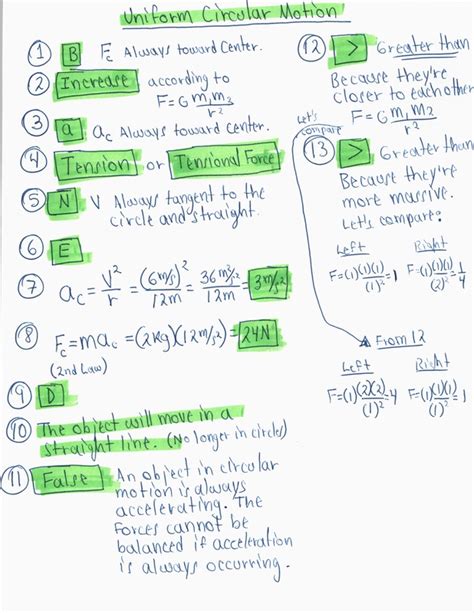 Uniform Circular Motion
① B Fc Always toward Center.
② Increase according to
F=G m₁m₂/r²
③ a ac Always toward Center.
④ Tension or Tensional Force
⑤ N V Always tangent to the
circle and straight.
⑥ E
⑦ ac = V²/r = (6m/s)²/12m = 36m²/s²/12m = 3m/s²
⑧ Fc=mac=(2kg)(12m/s²)=24N
(2nd Law)
⑨ D
⑩ The object will move in a
straight line. (No longer in circle)
⑪ False An object in circular
motion is always
accelerating. The
forces cannot be
balanced if acceleration
is always occurring.
⑫ > Greater than
Because they're
closer to each other
F=G m₁m₂/r²
Let's
compare
⑬ > Greater than
Because they're
more massive.
Let's compare:
Left Right
F=(1)(1)(1)/(1)²=1 F=(1)(1)(1)/(2)²=1/4
From 12
Left Right
F=(1)(2)(2)/(1)²=4 F=(1)(1)(1)/(1)²=1